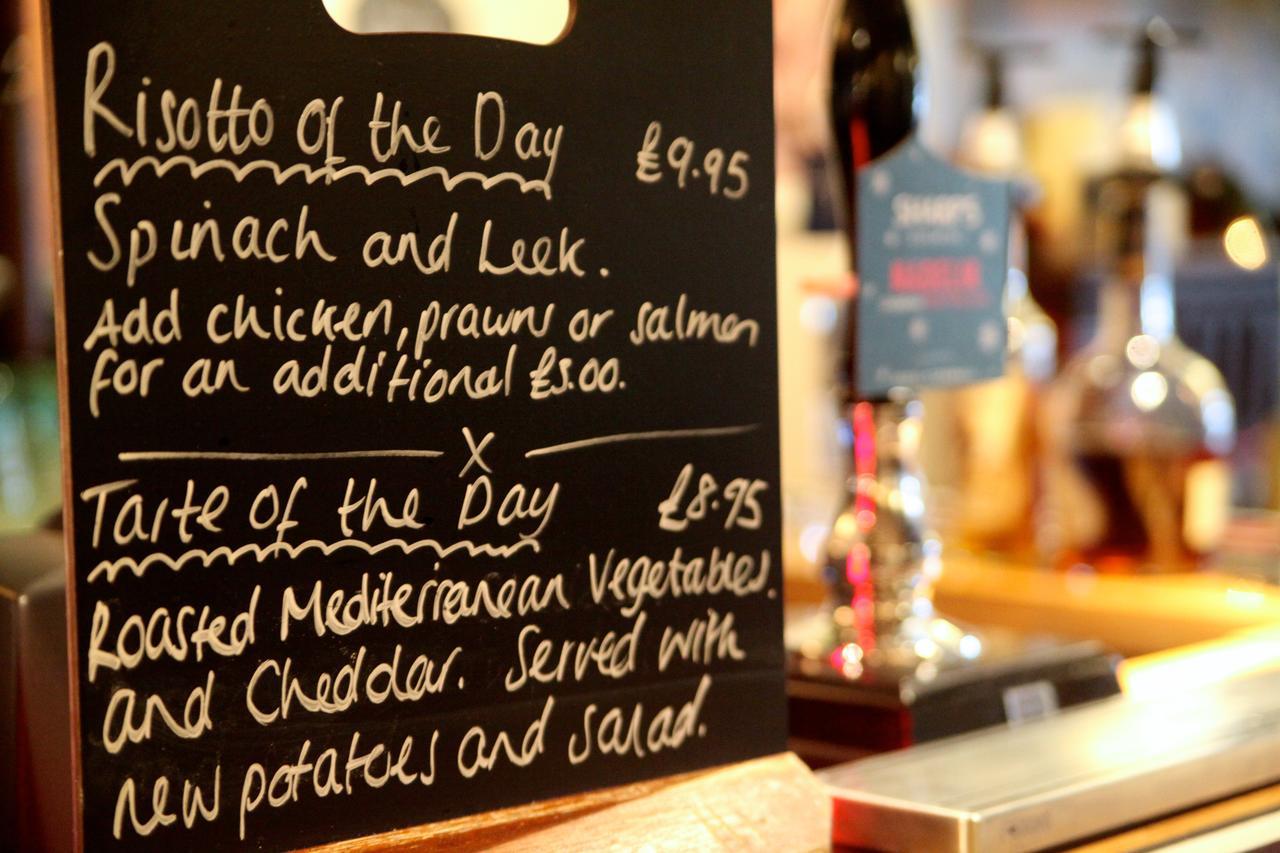 Risotto of the Day £9.95
Spinach and Leek.
Add chicken, prawns or salmon
for an additional £5.00.
X
Tarte of the Day £8.95
Roasted Mediterranean Vegetables.
and Cheddar. Served with
new potatoes and salad.
SHARP'S